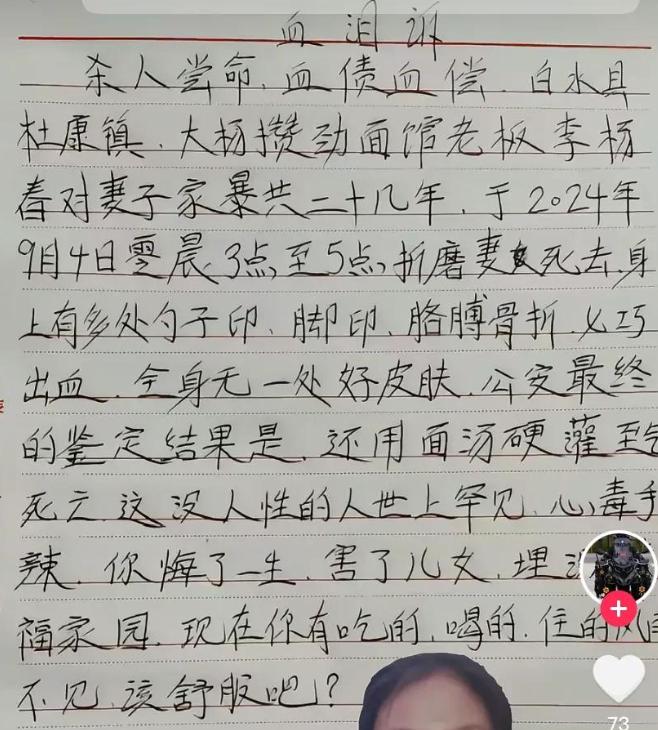 血泪诉
杀人尝命、血债血偿、白水县
杜康镇、大杨攒劲面馆老板李杨
春对妻子家暴共二十几年、于2024年
9月4日零晨3点至5点,折磨妻死去,身
上有多处勺子印、脚印、胳膊骨折、七巧
出血、全身无一处好皮肤、公安最终
的鉴定结果是、还用面汤硬灌至
死亡、这没人性的人世上罕见、心毒手
辣、你悔了一生、害了儿女、埋
福家园、现在你有吃的、喝的、住的风
不见、该舒服吧?
73